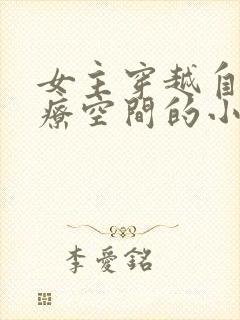 女主穿越自
療空間的小
李愛銘